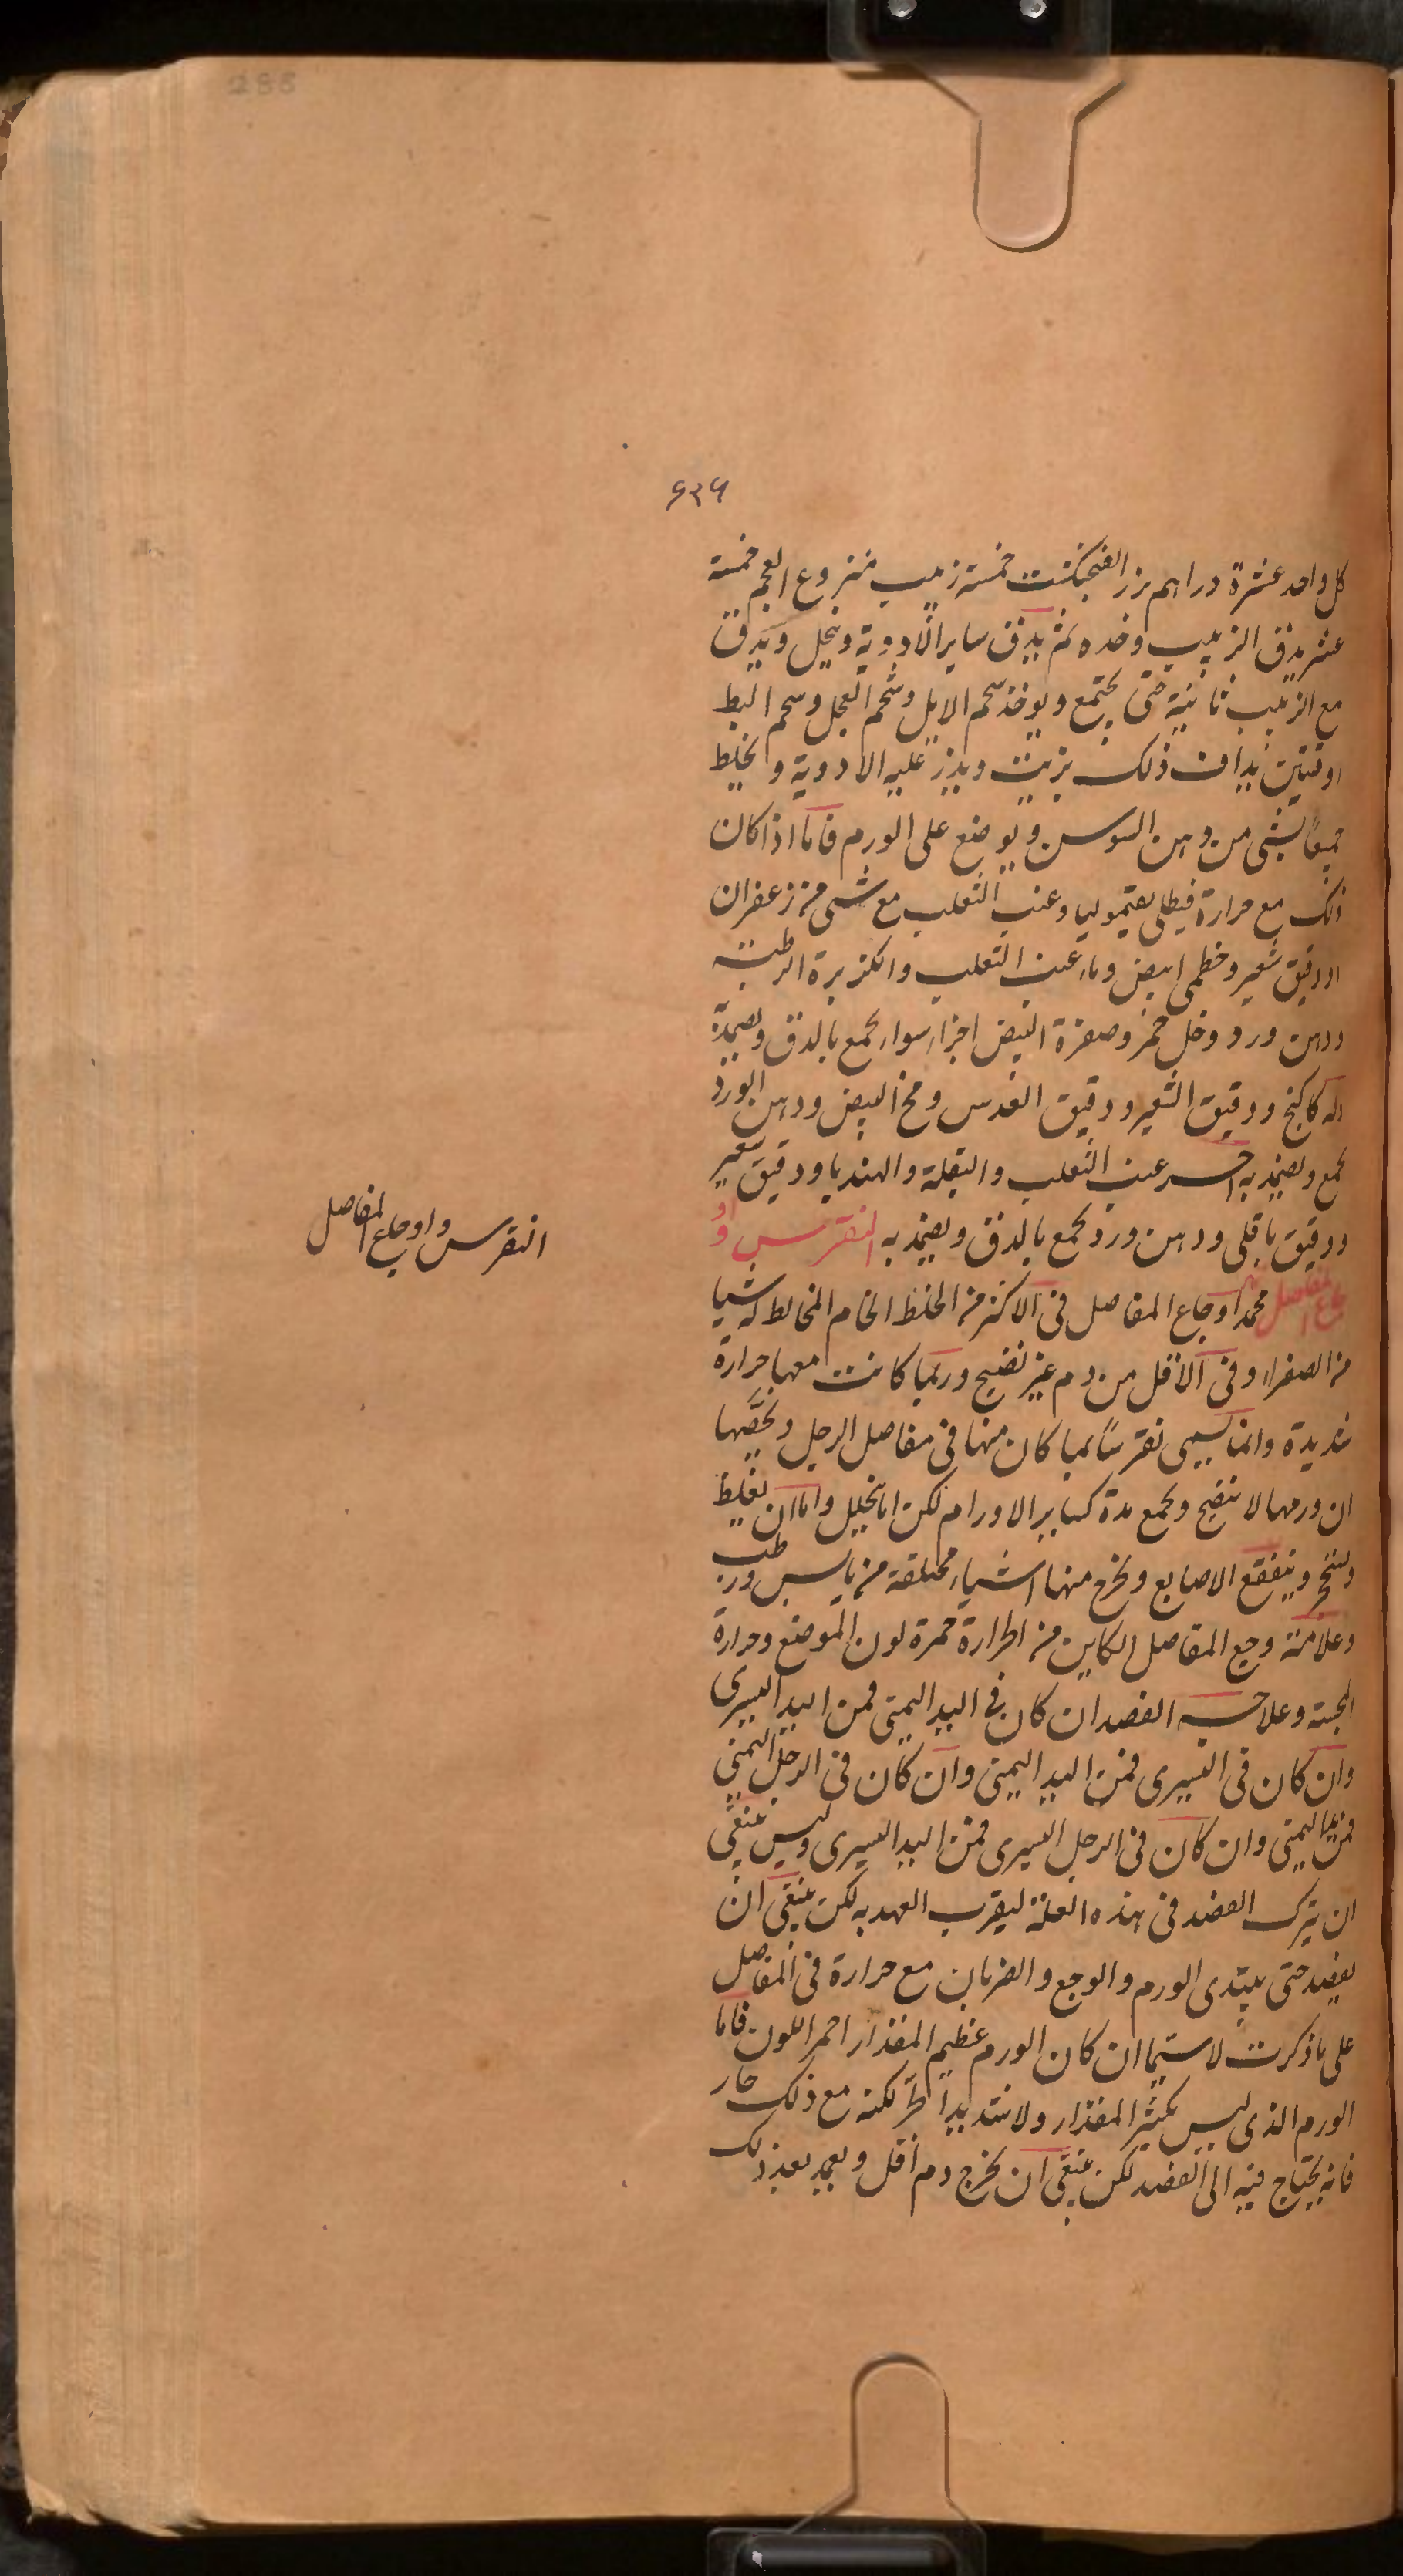 288
٤٣٦
كل واحد عشرة دراهم بزر الفنجنكشت خمسة زبيب منزوع العجم خمسة
عشر يدق الزبيب وحده ثم يدق ساير الادوية وينخل ويدق
مع الزبيب ثانية حتى يجتمع ويوخذ شحم الايل وشحم العجل وشحم البط
اوقيتين يداف ذلك بزيت ويذر عليه الادوية ويخلط
جميعا بشى من دهن السوسن ويوضع على الورم فاما اذا كان
ذلك مع حرارة فيطلى بقيموليا وعنب الثعلب مع شى من زعفران
او دقيق شعير وخطمى ابيض وماء عنب الثعلب والكزبرة الرطبة
ودهن ورد وخل خمر وصفرة البيض اجزاء سواء يجمع بالدق ويضمد به
كاكنج ودقيق الشعير ودقيق العدس ومح البيض ودهن الورد
يجمع ويضمد به اخر عنب الثعلب والبقلة والهندبا ودقيق شعير
ودقيق باقلى ودهن ورد يجمع بالدق ويضمد به النقرس واو
جاع المفاصل محمد اوجاع المفاصل فى الاكثر من الخلط الخام المخالط له شيا
من الصفراء وفى الاقل من دم غير نضيج وربما كانت معها حرارة
شديدة وانما يسمى نقرسا بما كان منها فى مفاصل الرجل ويخصها
ان ورمها لا ينضج ويجمع مدة كساير الاورام لكن اما يتحلل واما ان يغلظ
ويتحجر ويتفقع الاصابع ويخرج منها اشياء مختلفة من يابس ورطب
وعلامة وجع المفاصل الكاين من الحرارة حمرة لون الموضع وحرارة
المجسة وعلاجه الفصد ان كان فى اليد اليمنى فمن اليد اليسرى
وان كان فى اليسرى فمن اليد اليمنى وان كان فى الرجل اليمنى
فمن اليد اليمنى وان كان فى الرجل اليسرى فمن اليد اليسرى وليس ينبغى
ان يترك الفصد فى هذه العلة ليقرب العهد به لكن ينبغى ان
يفصد حتى يبتدى الورم والوجع والضربان مع حرارة فى المفاصل
على ما ذكرت لا سيما ان كان الورم عظيم المقدار احمر اللون فاما
الورم الذى ليس بكثير المقدار ولا شديد الحر لكنه مع ذلك حار
فانه يحتاج فيه الى الفصد لكن ينبغى ان يخرج دم اقل ويعمد بعد ذلك
النقرس واوجاع المفاصل